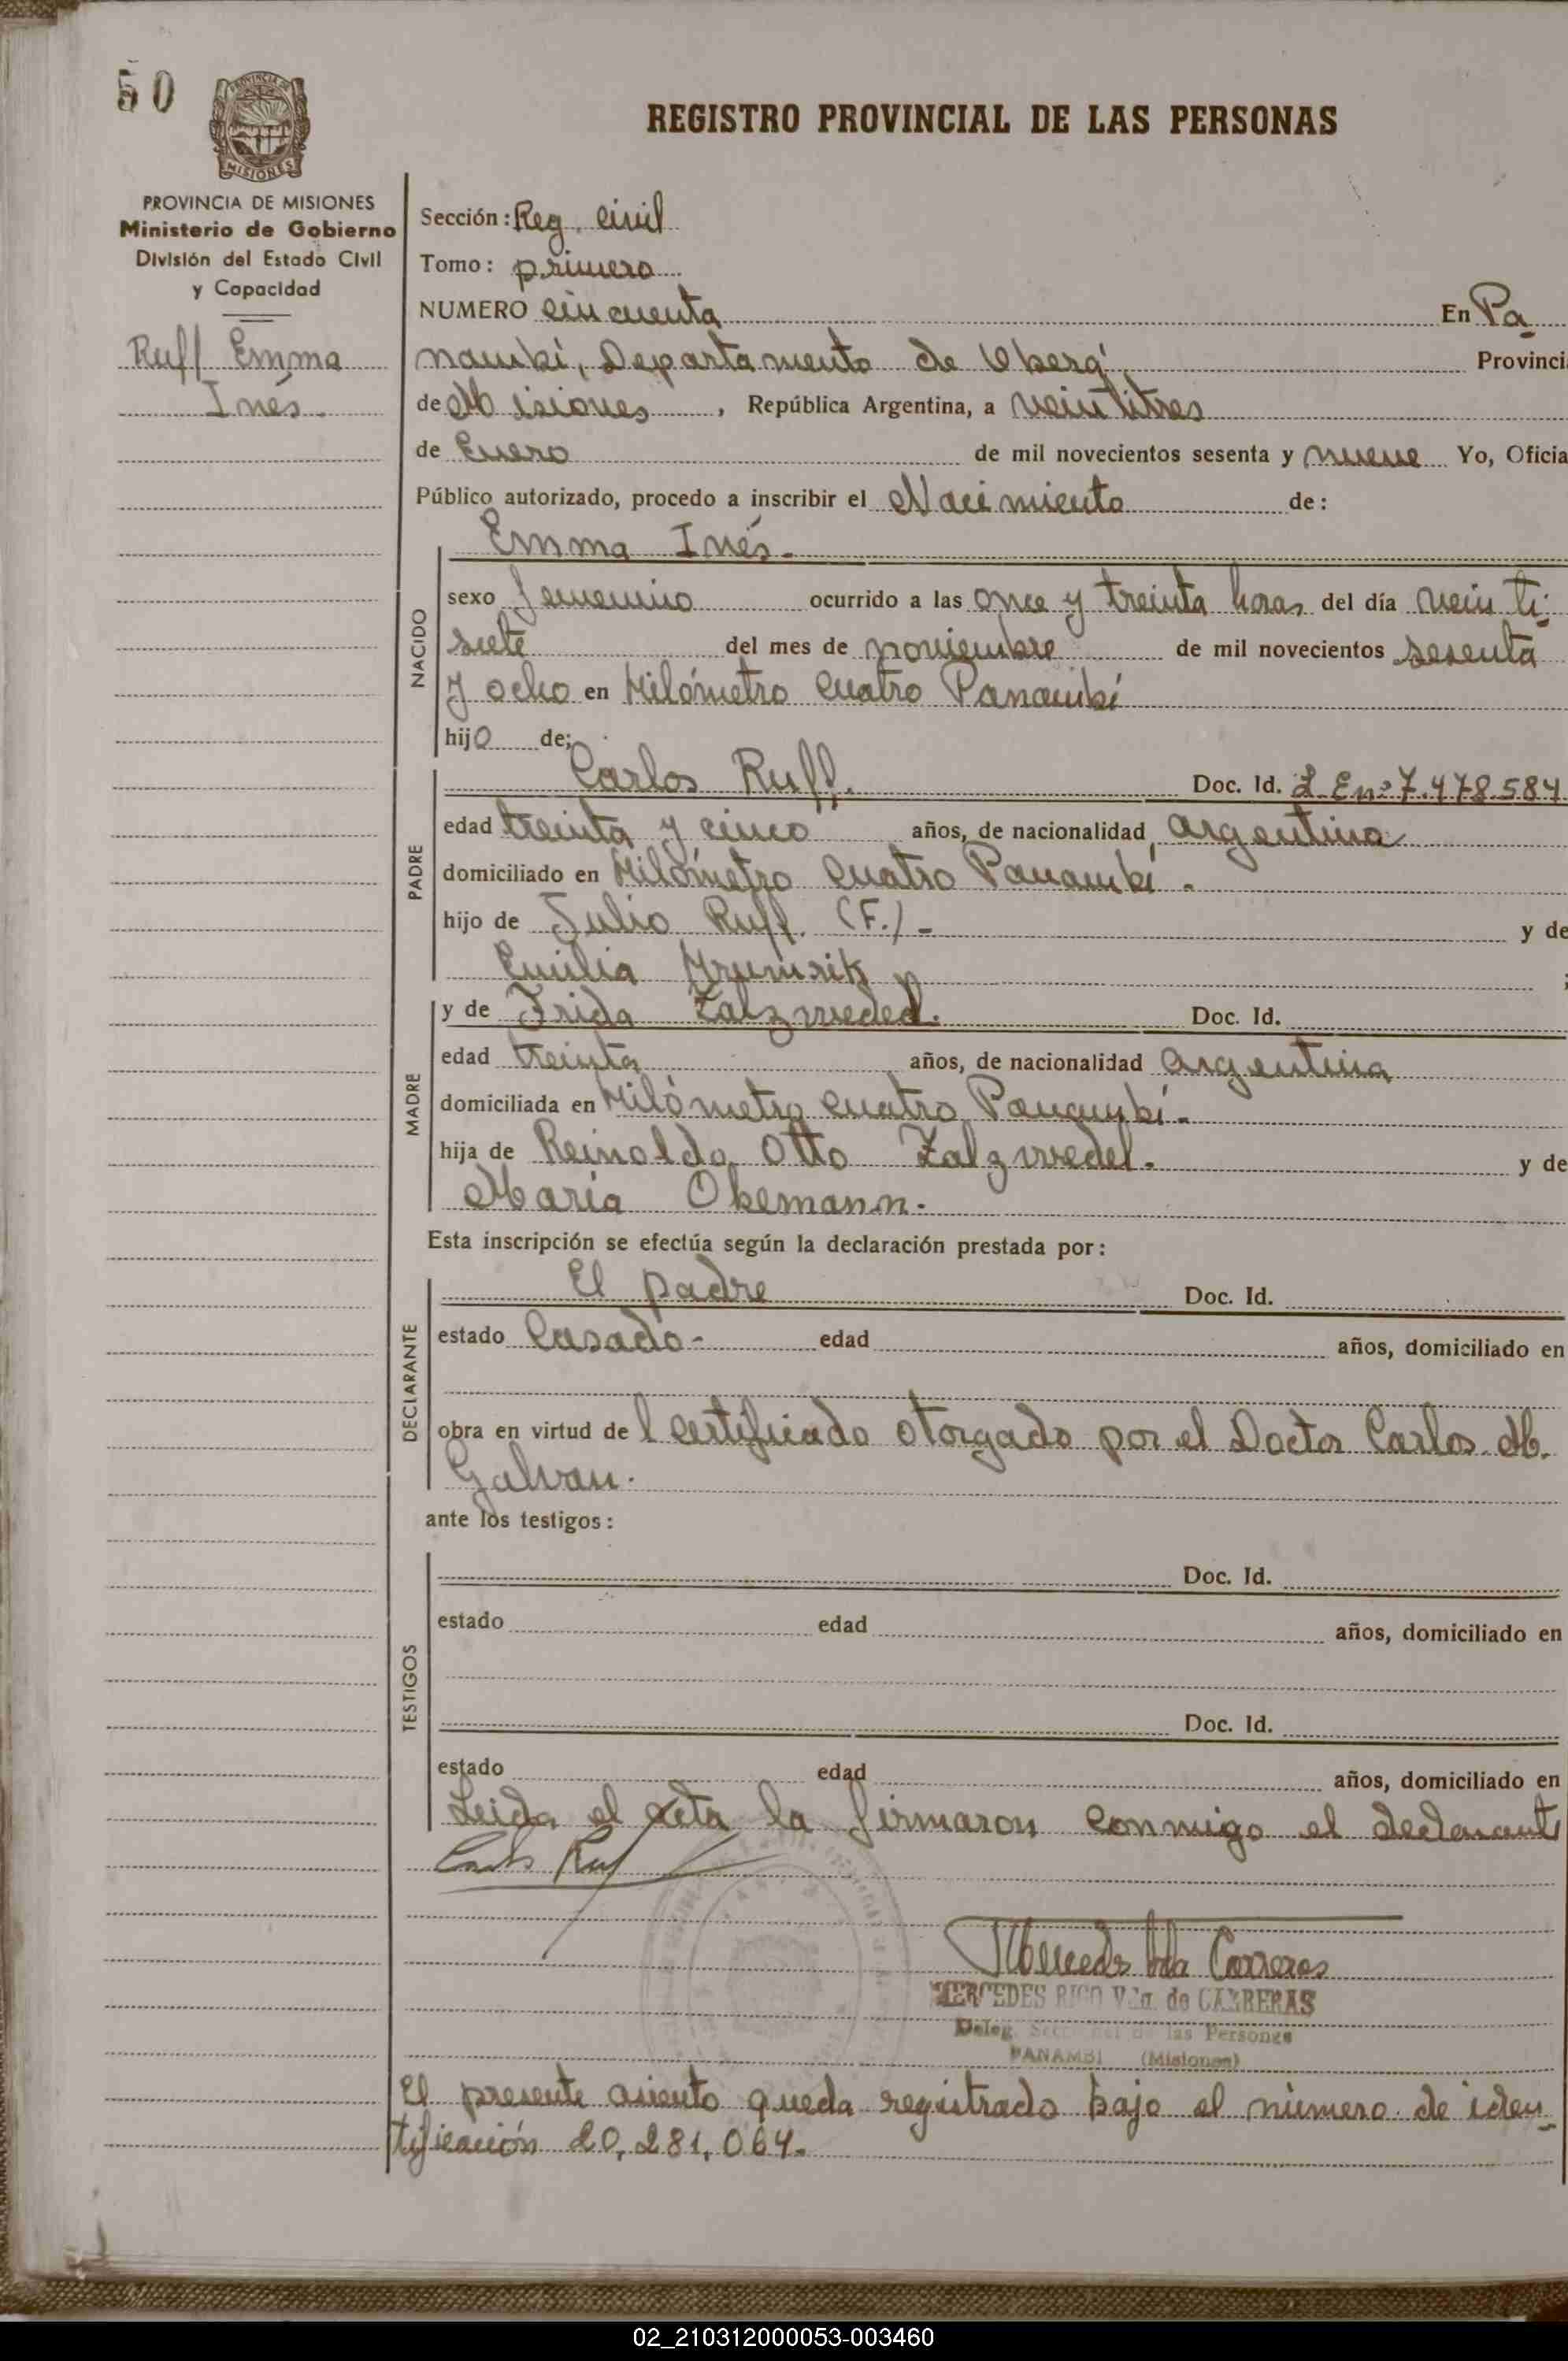 50
PROVINCIA
MISIONES
REGISTRO PROVINCIAL DE LAS PERSONAS
PROVINCIA DE MISIONES
Ministerio de Gobierno
División del Estado Civil
y Capacidad
Ruff Emma
Inés.
Sección: Reg. civil
Tomo: primero
NUMERO cincuenta En Pa
nambí, Departamento de Oberá Provinci
de Misiones, República Argentina, a veintitres
de Enero de mil novecientos sesenta y nueve Yo, Oficia
Público autorizado, procedo a inscribir el Nacimiento de:
Emma Inés.
NACIDO
sexo femenino ocurrido a las once y treinta horas del día veinti
siete del mes de noviembre de mil novecientos sesenta
y ocho en Kilómetro cuatro Panambí
hijo de;
PADRE
Carlos Ruff. Doc. Id. L.E nº 7.478.584
edad treinta y cinco años, de nacionalidad argentina
domiciliado en Kilómetro cuatro Panambí.
hijo de Julio Ruff. (F.) y de
Emilia
MADRE
y de Frida Zalzwedel. Doc. Id.
edad treinta años, de nacionalidad argentina
domiciliada en Kilómetro cuatro Panambí.
hija de Reinoldo Otto Zalzwedel. y de
María Okemann.
Esta inscripción se efectúa según la declaración prestada por:
DECLARANTE
El padre Doc. Id.
estado Casado edad años, domiciliado en
obra en virtud del certificado otorgado por el Doctor Carlos M.
Galvan.
ante los testigos:
TESTIGOS
Doc. Id.
estado edad años, domiciliado en
Doc. Id.
estado edad años, domiciliado en
Leida el acta la firmaron conmigo el declarante
Carlos Ruf
Mercedes Vda Carreras
MERCEDES RICO Vda. de CARRERAS
Deleg. Seccional de las Personas
PANAMBI (Misiones)
El presente asiento queda registrado bajo el número de iden
tificación 20,281,064.
02_210312000053-003460